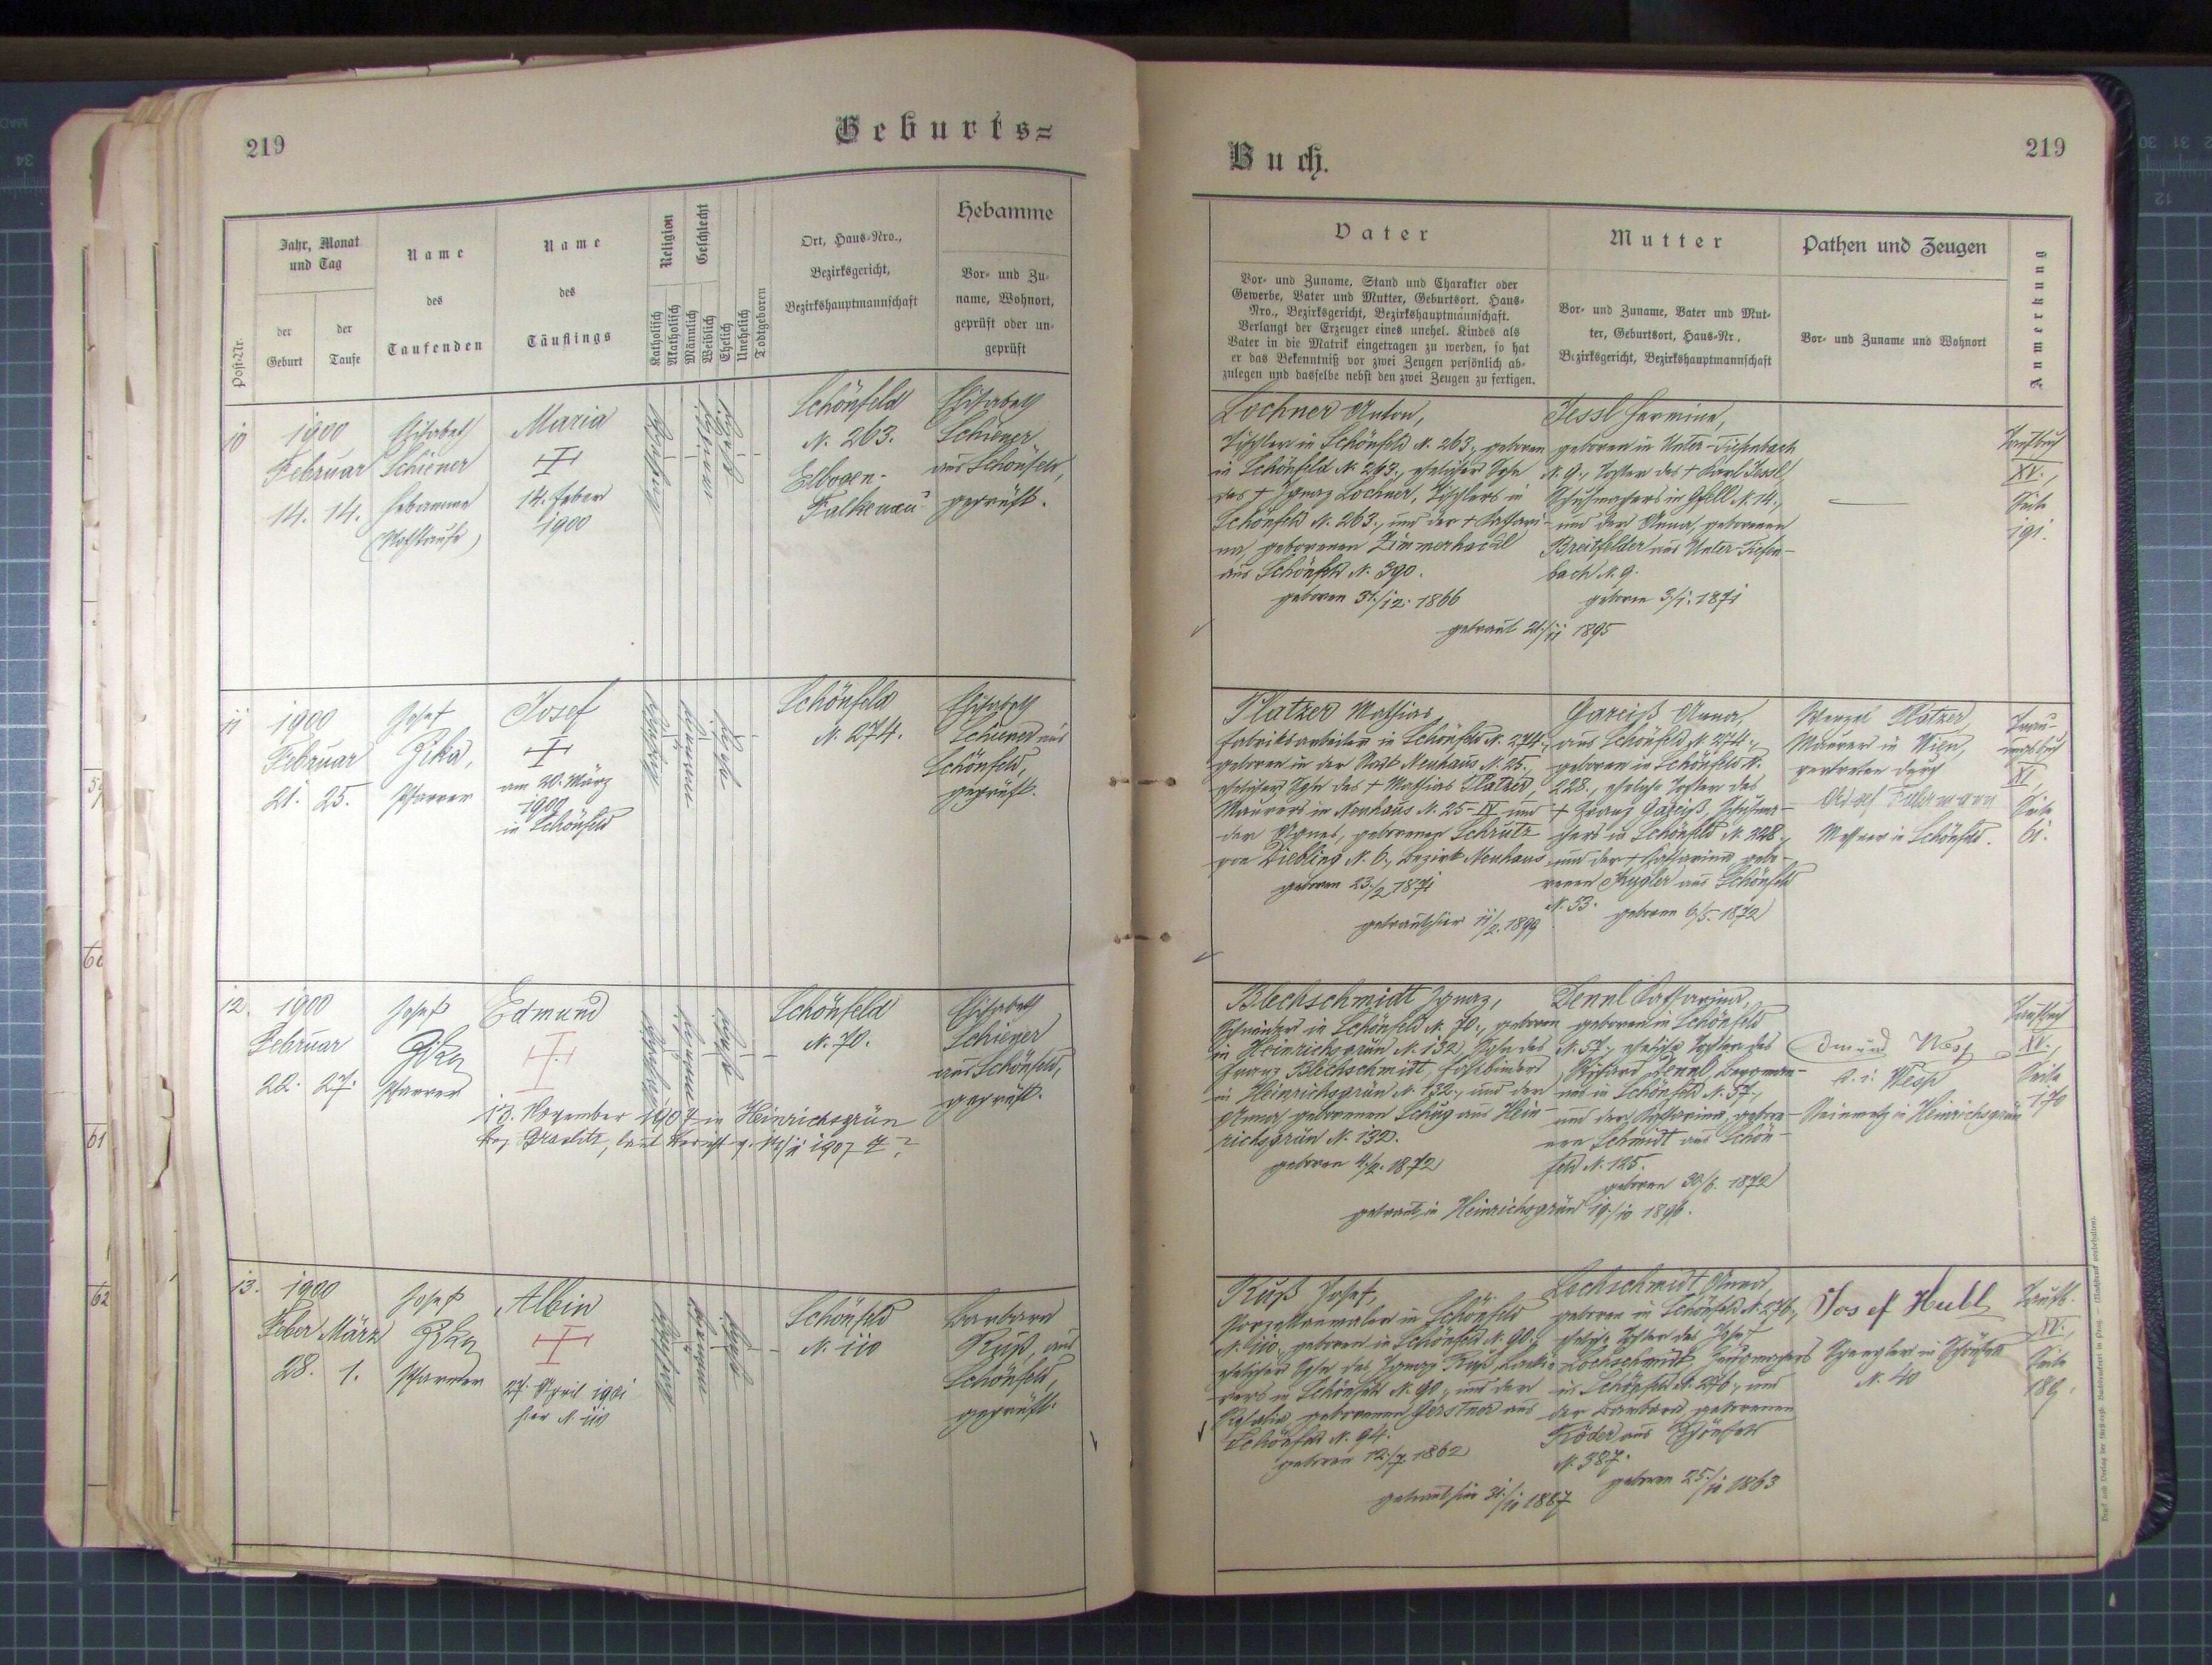 219
Geburts=
Post-Nr.
Jahr, Monat
und Tag
der
Geburt
der
Taufe
Name
des
Taufenden
Name
des
Täuflings
Religion
Katholisch
Akatholisch
Geschlecht
Männlich
Weiblich
Ehelich
Unehelich
Todtgeboren
Ort, Haus-Nro.,
Bezirksgericht,
Bezirkshauptmannschaft
Hebamme
Vor- und Zu-
name, Wohnort,
geprüft oder un-
geprüft
10
1900
Februar
14. 14.
Elisabeth
Schiener
Hebamme
(Nothtaufe)
Maria
14. Feber
1900
Schönfeld
N. 263.
Elbogen-
Falkenau
Elisabeth
Schiener
aus Schönfeld,
geprüft.
11
1900
Februar
21. 25.
Josef
Pfarrer
Josef
am 20. März
1900
in Schönfeld
Schönfeld
N. 274.
Elisabeth
Schiener aus
Schönfeld,
geprüft.
12.
1900
Februar
22. 27.
Josef
Pfarrer
Edmund
13. November 1907 in Heinrichsgrün
Bez. Graslitz, laut Bericht
Schönfeld
N. 70.
Elisabeth
Schiener
aus Schönfeld,
geprüft.
13.
1900
Feber März
28. 1.
Josef
Pfarrer
Albin
27. April 1901
hier N. 110
Schönfeld
N. 110
Barbara
Ruß, aus
Schönfeld,
geprüft.
Buch.
219
Vater
Vor- und Zuname, Stand und Charakter oder
Gewerbe, Vater und Mutter, Geburtsort. Haus-
Nro., Bezirksgericht, Bezirkshauptmannschaft.
Verlangt der Erzeuger eines unehel. Kindes als
Vater in die Matrik eingetragen zu werden, so hat
er das Bekenntniß vor zwei Zeugen persönlich ab-
zulegen und dasselbe nebst den zwei Zeugen zu fertigen.
Mutter
Vor- und Zuname, Vater und Mut-
ter, Geburtsort, Haus-Nr.,
Bezirksgericht, Bezirkshauptmannschaft
Pathen und Zeugen
Vor- und Zuname und Wohnort
Anmerkung
Lochner Anton,
Tischler in Schönfeld N. 263., geboren
in Schönfeld N. 263., ehelicher Sohn
des † Ignaz Lochner, Tischlers in
Schönfeld N. 263., und der † Kathari-
na, geborenen Zimmerhackl
aus Schönfeld N. 390.
geboren 31./12. 1866
Jessl Hermine,
geboren in Unter-Tiefenbach
N. 9., Tochter des † Karl Jessl,
Schuhmachers in Gfell N. 14.,
und der Anna, geborenen
Breitfelder aus Unter-Tiefen-
bach N. 9.
geboren 3./1. 1871
getraut 21./11 1895
Taufbuch
XV.,
Seite
191.
Platzer Mathias
Fabriksarbeiter in Schönfeld N. 274.,
geboren in der Stadt Neuhaus N. 25.
ehelicher Sohn des † Mathias Platzer,
Maurers in Neuhaus N. 25-IV und
der Agnes, geborenen Schrutz
von Diebling N. 6., Bezirk Neuhaus
geboren 23./2. 1871
getraut hier 11/2. 1899
Gareiß Anna,
aus Schönfeld N. 274.,
geboren in Schönfeld N.
228., eheliche Tochter des
† Franz Gareiß, Schuhma-
chers in Schönfeld N. 228.,
und der † Katharina, gebo-
renen Kugler aus Schönfeld
N. 53. geboren 6/5. 1872
Wenzel Platzer,
Maurer in Wien,
vertreten durch
Messner in Schönfeld.
Trau-
ungsbuch
XI,
Seite
61.
Blechschmidt Ignaz,
Schneider in Schönfeld N. 70., geboren
in Heinrichsgrün N. 132, Sohn des
Franz Blechschmidt, Faßbinders
in Heinrichsgrün N. 132., und der
Anna, geborenen Schug aus Hein-
richsgrün N. 132.
geboren 4./2. 1872
Dennl Katharina,
geboren in Schönfeld
N. 57., eheliche Tochter des
Richard Dennl Bergman-
nes in Schönfeld N. 57.,
und der Katharina, gebor-
enen Schmidt aus Schön-
feld N. 125.
geboren 30/6. 1872
getraut in Heinrichsgrün 19./10 1896.
Edmund Wesp
d. i. Wesp
Steinmetz in Heinrichsgrün
Taufbuch
XV.,
Seite
170
Ruß Josef,
Porzellanmaler in Schönfeld
N. 110., geboren in Schönfeld N. 90.,
ehelicher Sohn des Ignaz Ruß
in Schönfeld N. 90., und der
Rosalia, geborenen Gerstner aus
Schönfeld N. 94.
geboren 12./7 1862
getraut hier 31./10 1887
Lochschmidt Anna,
geboren in Schönfeld N. 276.,
eheliche Tochter des Josef
Lochschmidt, Zeugmachers
in Schönfeld N. 276., und
der Barbara, geborenen
Röder aus Schönfeld
N. 387.
geboren 25./11 1863
Josef Hubl
Spengler in Schönfeld
N. 40
Taufb.
XV.,
Seite
189.